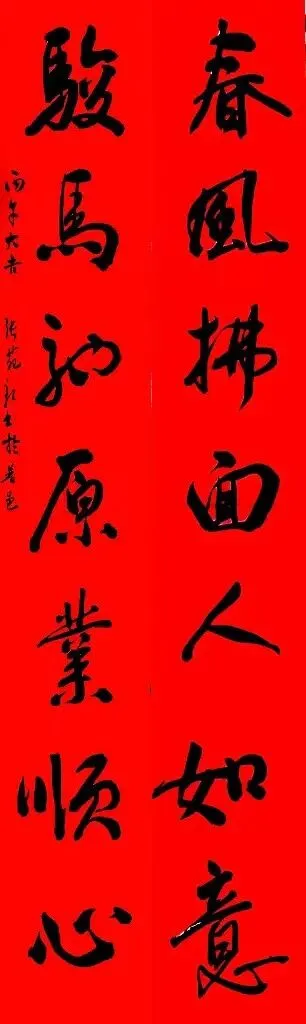 春風拂面人如意
駿馬馳原業順心
丙午大吉 張苑